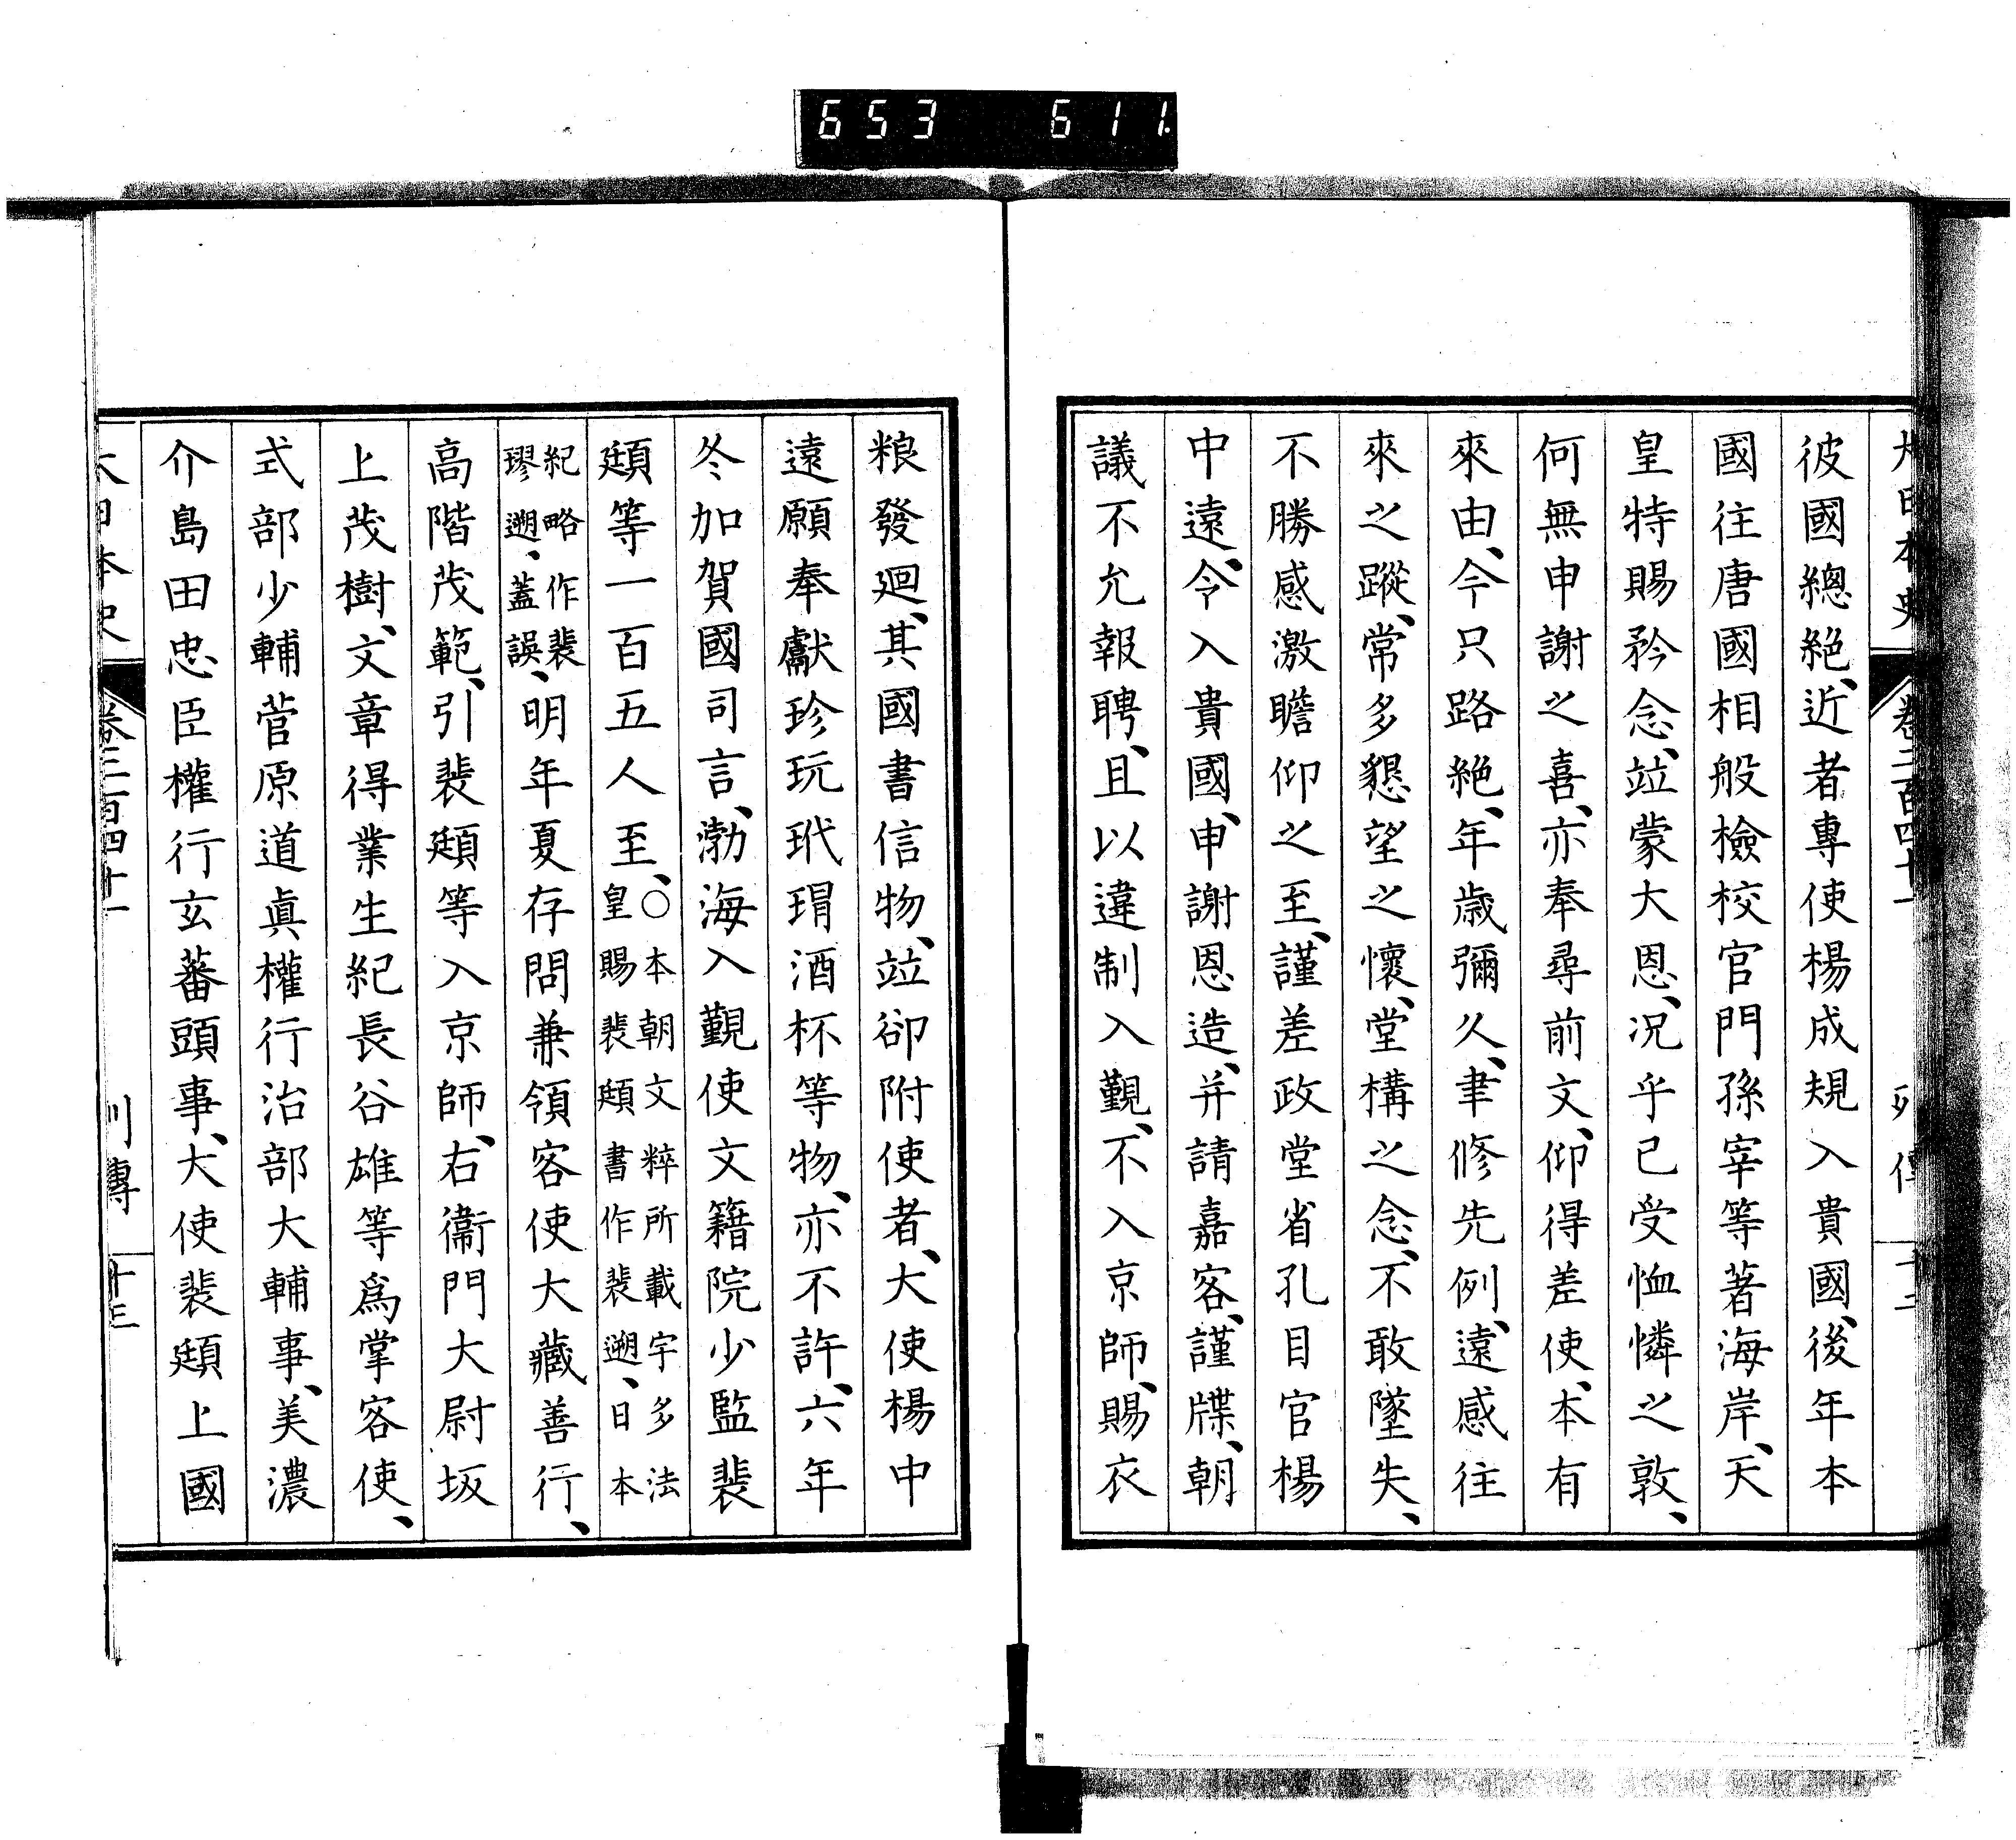 653 611.
大日本史 卷二百四十一 列傳 十二
彼國總絶、近者專使楊成規入貴國、後年本
國往唐國相般檢校官門孫宰等著海岸、天
皇特賜矜念、竝蒙大恩、況乎已受恤憐之敦、
何無申謝之喜、亦奉尋前文、仰得差使、本有
來由、今只路絶、年歲彌久、聿修先例、遠感往
來之蹤、常多懇望之懷、堂構之念、不敢墜失、
不勝感激瞻仰之至、謹差政堂省孔目官楊
中遠、令入貴國、申謝恩造、并請嘉客、謹牒、朝
議不允報聘、且以違制入覲、不入京師、賜衣
粮發廻、其國書信物、竝卻附使者、大使楊中
遠願奉獻珍玩玳瑁酒杯等物、亦不許、六年
冬加賀國司言、渤海入覲使文籍院少監裴
頲等一百五人至、○本朝文粹所載宇多法
皇賜裴頲書作裴遡、日本
紀略作裴
璆遡、蓋誤、明年夏存問兼領客使大藏善行、
高階茂範、引裴頲等入京師、右衞門大尉坂
上茂樹、文章得業生紀長谷雄等爲掌客使、
式部少輔菅原道眞權行治部大輔事、美濃
介島田忠臣權行玄蕃頭事、大使裴頲上國
大日本史 卷二百四十一 列傳 十三